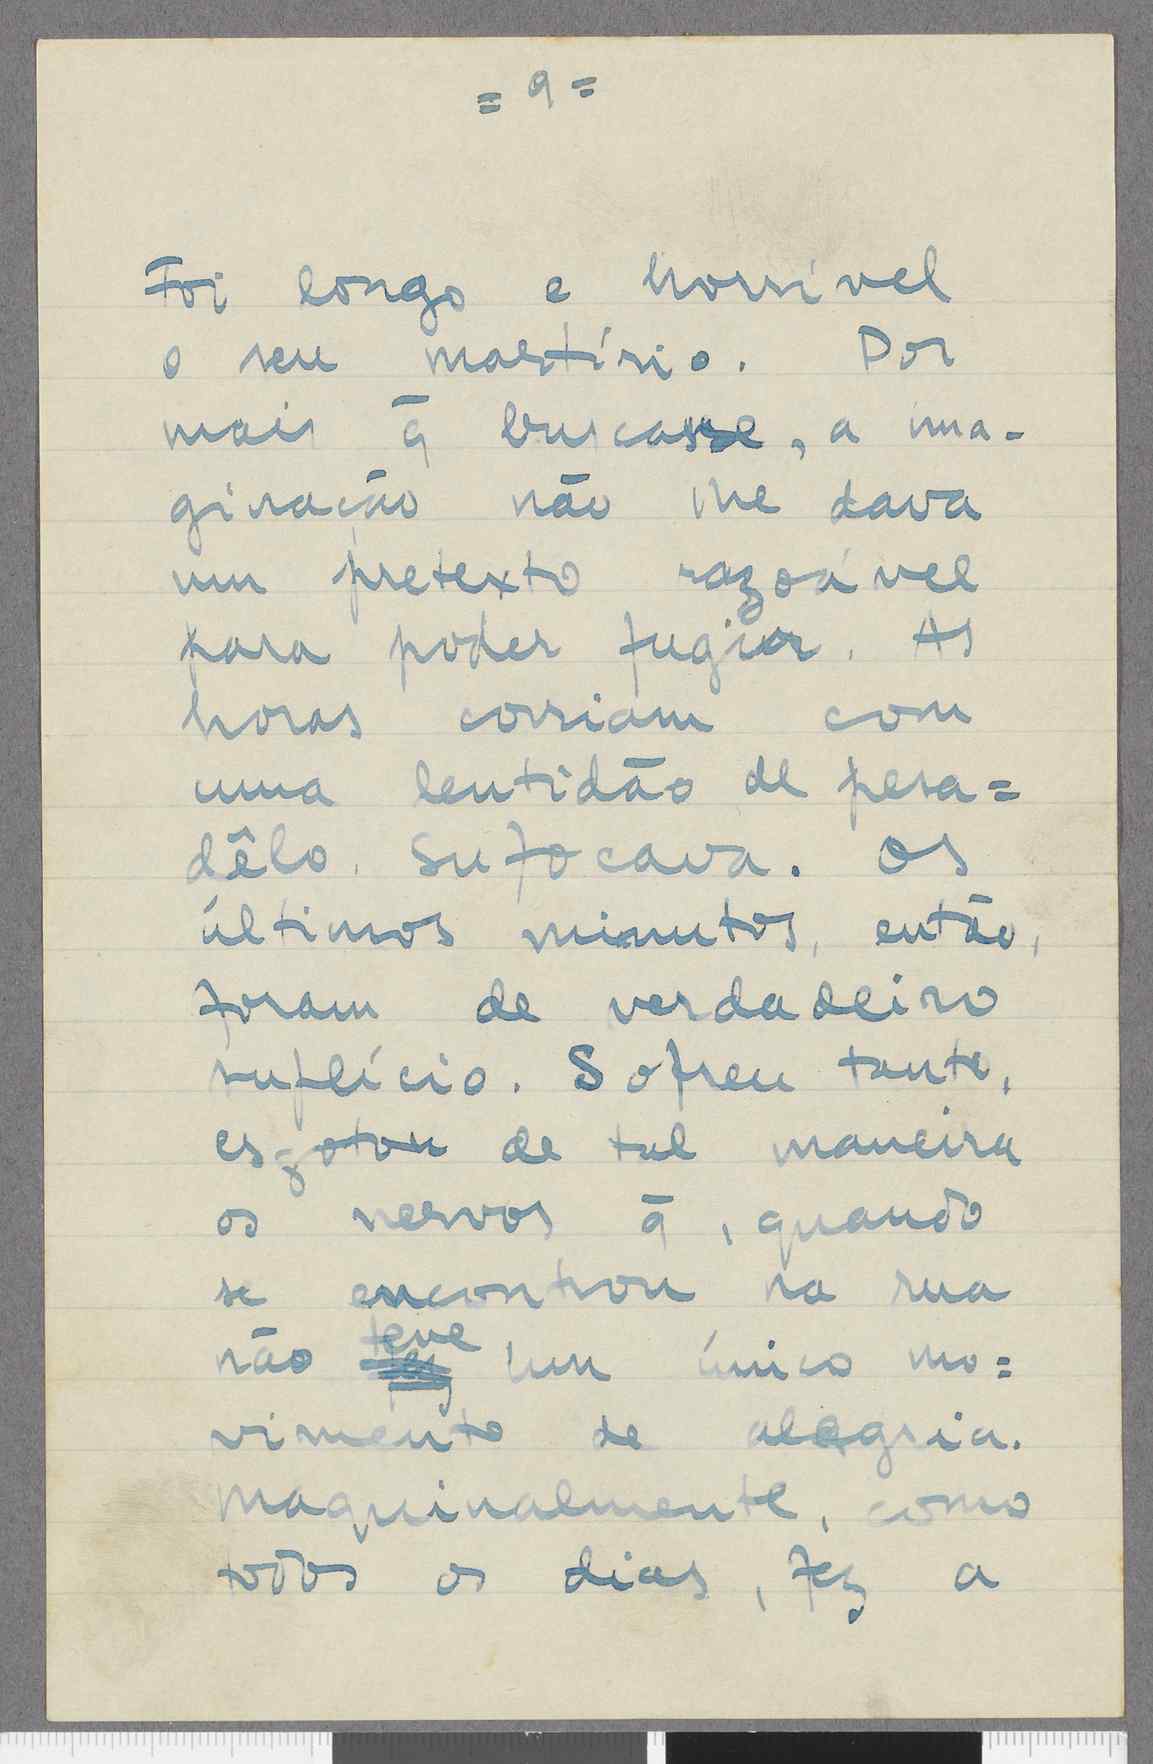 = 9 =
Foi longo e horrível
o seu martírio. Por
mais q̄ buscasse, a ima-
ginação não lhe dava
um pretexto razoável
para poder fugir. As
horas corriam com
uma lentidão de pesa=
dêlo. Sufocava. Os
últimos minutos, então,
foram de verdadeiro
suplício. Sofreu tanto,
esgotou de tal maneira
os nervos q̄, quando
se encontrou na rua
não teve um único mo=
vimento de alegria.
Maquinalmente, como
todos os dias, fez a